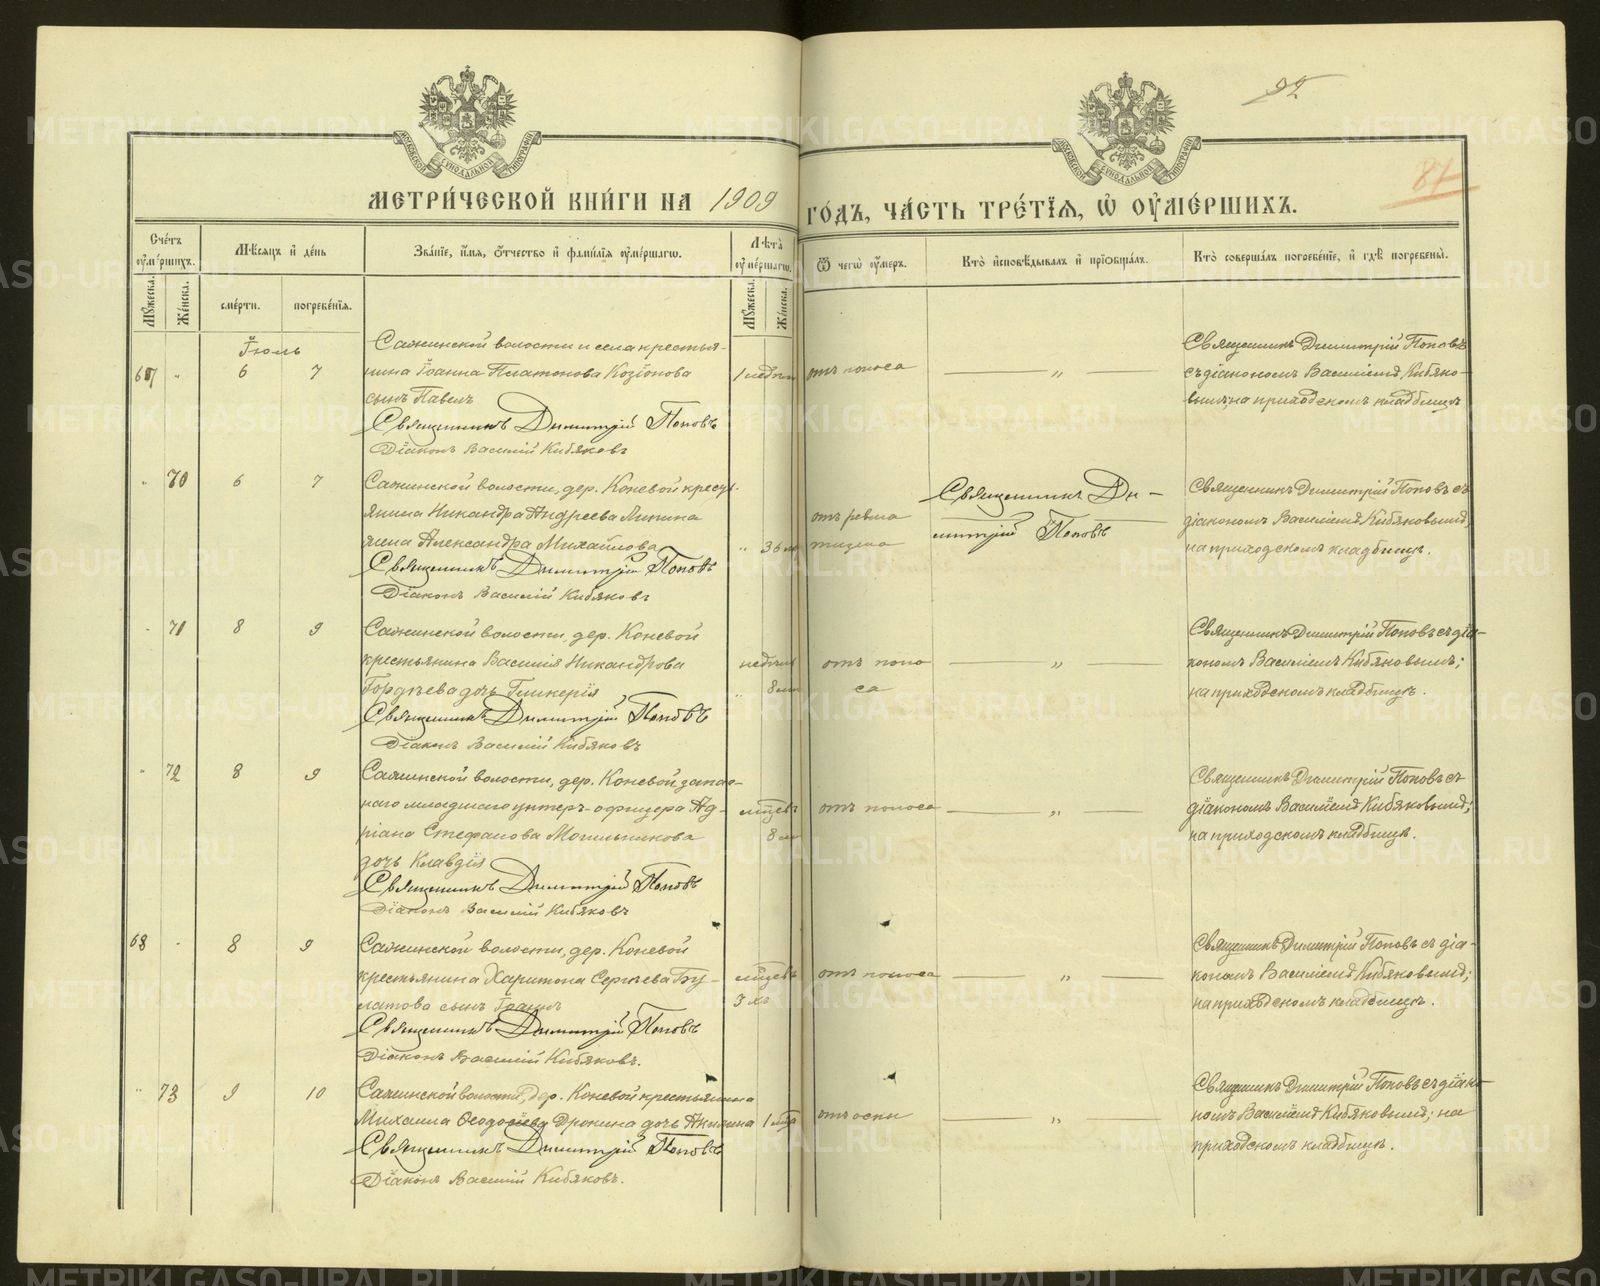 92
87
МЕТРИ́ЧЕСКОЙ КНИ́ГИ НА 1909
ГО́ДЪ, ЧА́СТЬ ТРЕ́ТІЯ, Ѡ ОУ҆МЕ́РШИХЪ.
Сче́тъ оумершихъ.
Мѣсяцъ и де́нь
Зва́ніе, имя, отчество и фами́лія оумершагѡ.
Лѣта оумершагѡ.
Мꙋжеска.
Женска.
сме́рти.
погребе́нія.
Мꙋжеска.
Женска.
Ѿ чегѡ оумеръ.
Кто̀ исповѣдывалъ и пріобщалъ.
Кто̀ соверша́лъ погребе́ніе, и гдѣ̀ погребены̀.
Іюль
67 " 6 7
Сажинской волости и села крестья-
нина Іоанна Платонова Козіонова
сынъ Павелъ
Священникъ Димитрій Поповъ
Діаконъ Василій Кибяковъ
отъ поноса
"
Священникъ Димитрій Поповъ
съ діакономъ Василіемъ Кибяко-
вымъ; на приходскомъ кладбищѣ
" 70 6 7
Сажинской волости, дер. Коневой кресть-
янина Никандра Андреева
жена Александра Михайлова
Священникъ Димитрій Поповъ
Діаконъ Василій Кибяковъ
" 36
отъ ревма
тизма
Священникъ Ди-
митрій Поповъ
Священникъ Димитрій Поповъ съ
діакономъ Василіемъ Кибяковымъ;
на приходскомъ кладбищѣ.
" 71 8 9
Сажинской волости, дер. Коневой
крестьянина Василія Никандрова
Гордѣева дочь Гликерія
Священникъ Димитрій Поповъ
Діаконъ Василій Кибяковъ
недѣль
" 8
отъ поно
са
"
Священникъ Димитрій Поповъ съ діа-
кономъ Василіемъ Кибяковымъ;
на приходскомъ кладбищѣ.
" 72 8 9
Сажинской волости, дер. Коневой запас-
наго младшаго унтеръ-офицера Ад-
ріана Стефанова Могильникова
дочь Клавдія
Священникъ Димитрій Поповъ
Діаконъ Василій Кибяковъ
мѣсяцевъ
8
отъ поноса
"
Священникъ Димитрій Поповъ съ
діакономъ Василіемъ Кибяковымъ;
на приходскомъ кладбищѣ.
68 " 8 9
Сажинской волости, дер. Коневой
крестьянина Харитона Сергѣева Бу-
латова сынъ
Священникъ Димитрій Поповъ
Діаконъ Василій Кибяковъ.
отъ поноса
"
Священникъ Димитрій Поповъ съ діа-
кономъ Василіемъ Кибяковымъ;
на приходскомъ кладбищѣ.
" 73 9 10
Сажинской волости, дер. Коневой крестьянина
Михаила Ѳеодосіева Дрокина дочь Акилина
Священникъ Димитрій Поповъ
Діаконъ Василій Кибяковъ.
отъ оспы
"
Священникъ Димитрій Поповъ съ діако-
номъ Василіемъ Кибяковымъ; на
приходскомъ кладбищѣ.
METRIKI.GASO-URAL.RU